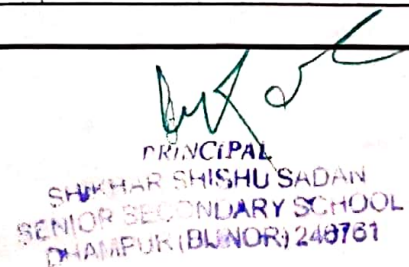 PRINCIPAL
SHIKHAR SHISHU SADAN
SENIOR SECONDARY SCHOOL
DHAMPUR (BIJNOR) 246761